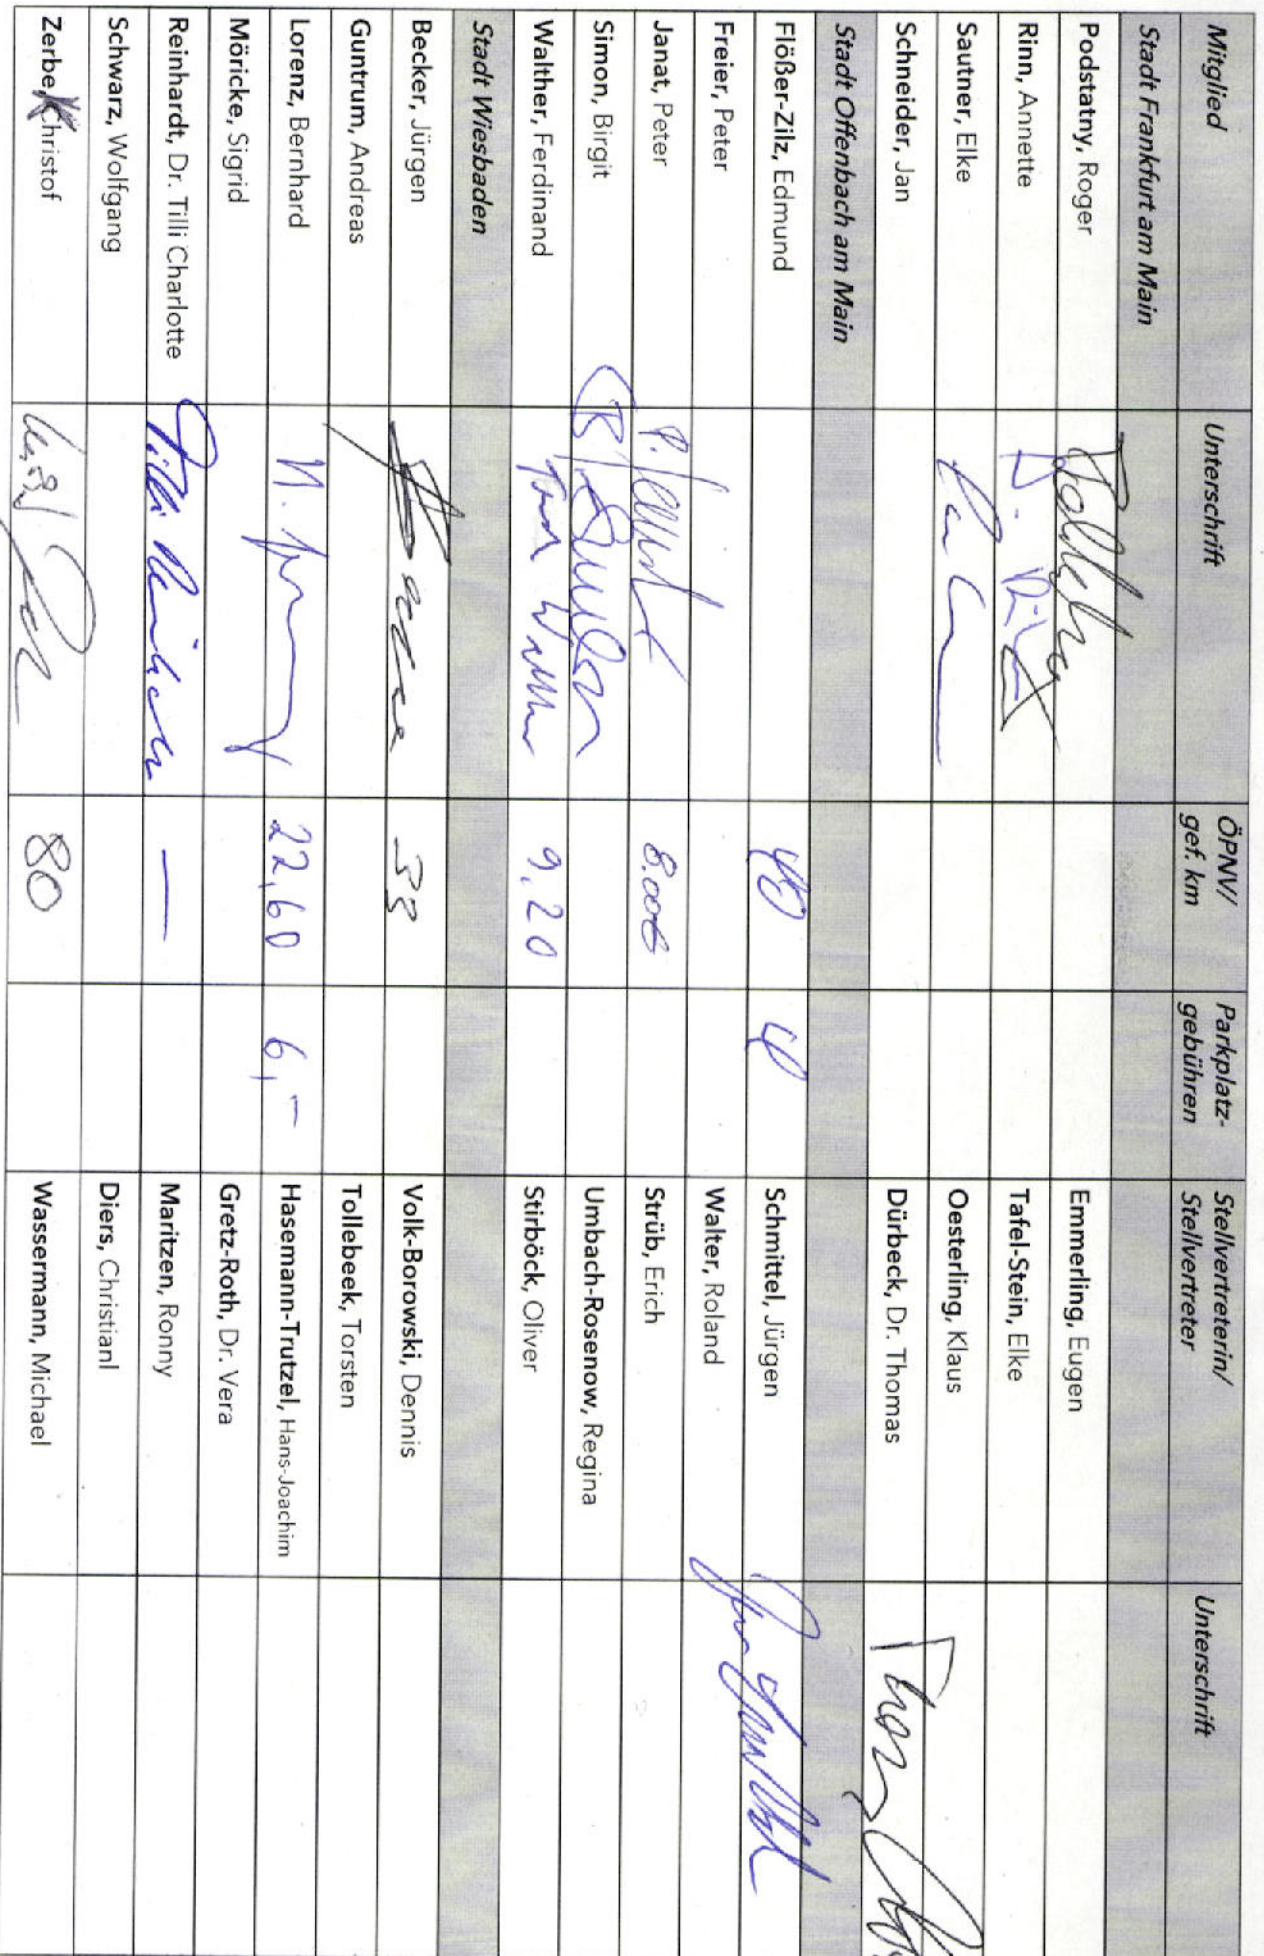 Mitglied Unterschrift ÖPNV/ gef. km Parkplatz- gebühren Stellvertreterin/ Stellvertreter Unterschrift
Stadt Frankfurt am Main
Podstatny, Roger Emmerling, Eugen
Rinn, Annette Tafel-Stein, Elke
Sautner, Elke Oesterling, Klaus
Schneider, Jan Dürbeck, Dr. Thomas
Stadt Offenbach am Main
Flößer-Zilz, Edmund Schmittel, Jürgen
Freier, Peter Walter, Roland
Janat, Peter P. Janat Strüb, Erich
Simon, Birgit Umbach-Rosenow, Regina
Walther, Ferdinand 9,20 Stirböck, Oliver
Stadt Wiesbaden
Becker, Jürgen 38 Volk-Borowski, Dennis
Guntrum, Andreas Tollebeek, Torsten
Lorenz, Bernhard 22,60 6,- Hasemann-Trutzel, Hans-Joachim
Möricke, Sigrid Gretz-Roth, Dr. Vera
Reinhardt, Dr. Tilli Charlotte Tilli Reinhardt — Maritzen, Ronny
Schwarz, Wolfgang Diers, Christianl
Zerbe, Christof 80 Wassermann, Michael